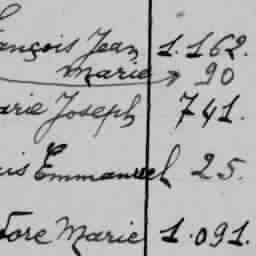 ançois Jean 1.162.
Marie 90
arie Joseph 741.
uis Emmanuel 25.
dore Marie 1.091.